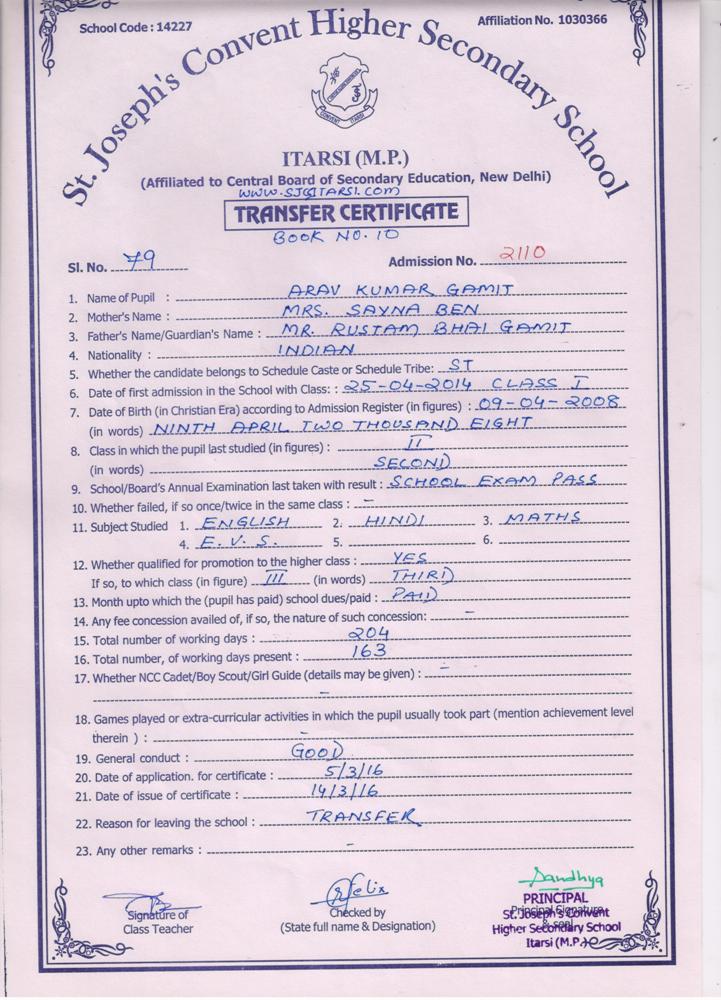 School Code : 14227
Affiliation No. 1030366
St. Joseph's Convent Higher Secondary School
CONVENT ITARSI
ITARSI (M.P.)
(Affiliated to Central Board of Secondary Education, New Delhi)
WWW.SJCITARSI.COM
TRANSFER CERTIFICATE
BOOK NO. 10
Sl. No. 79
Admission No. 2110
1. Name of Pupil : ARAV KUMAR GAMIT
2. Mother's Name : MRS. SAYNA BEN
3. Father's Name/Guardian's Name : MR. RUSTAM BHAI GAMIT
4. Nationality : INDIAN
5. Whether the candidate belongs to Schedule Caste or Schedule Tribe: ST
6. Date of first admission in the School with Class: 25-04-2014 CLASS I
7. Date of Birth (in Christian Era) according to Admission Register (in figures) : 09-04-2008
(in words) NINTH APRIL TWO THOUSAND EIGHT
8. Class in which the pupil last studied (in figures) : II
(in words) SECOND
9. School/Board's Annual Examination last taken with result : SCHOOL EXAM PASS
10. Whether failed, if so once/twice in the same class : –
11. Subject Studied 1. ENGLISH 2. HINDI 3. MATHS
4. E. V. S. 5. 6.
12. Whether qualified for promotion to the higher class : YES
If so, to which class (in figure) III (in words) THIRD
13. Month upto which the (pupil has paid) school dues/paid : PAID
14. Any fee concession availed of, if so, the nature of such concession: –
15. Total number of working days : 204
16. Total number, of working days present : 163
17. Whether NCC Cadet/Boy Scout/Girl Guide (details may be given) : –
–
18. Games played or extra-curricular activities in which the pupil usually took part (mention achievement level
therein ) : –
19. General conduct : GOOD
20. Date of application. for certificate : 5/3/16
21. Date of issue of certificate : 14/3/16
22. Reason for leaving the school : TRANSFER
23. Any other remarks : –
Signature of
Class Teacher
Felix
Checked by
(State full name & Designation)
Sandhya
PRINCIPAL
Principal Signature
& seal
St. Joseph's Convent
Higher Secondary School
Itarsi (M.P.)